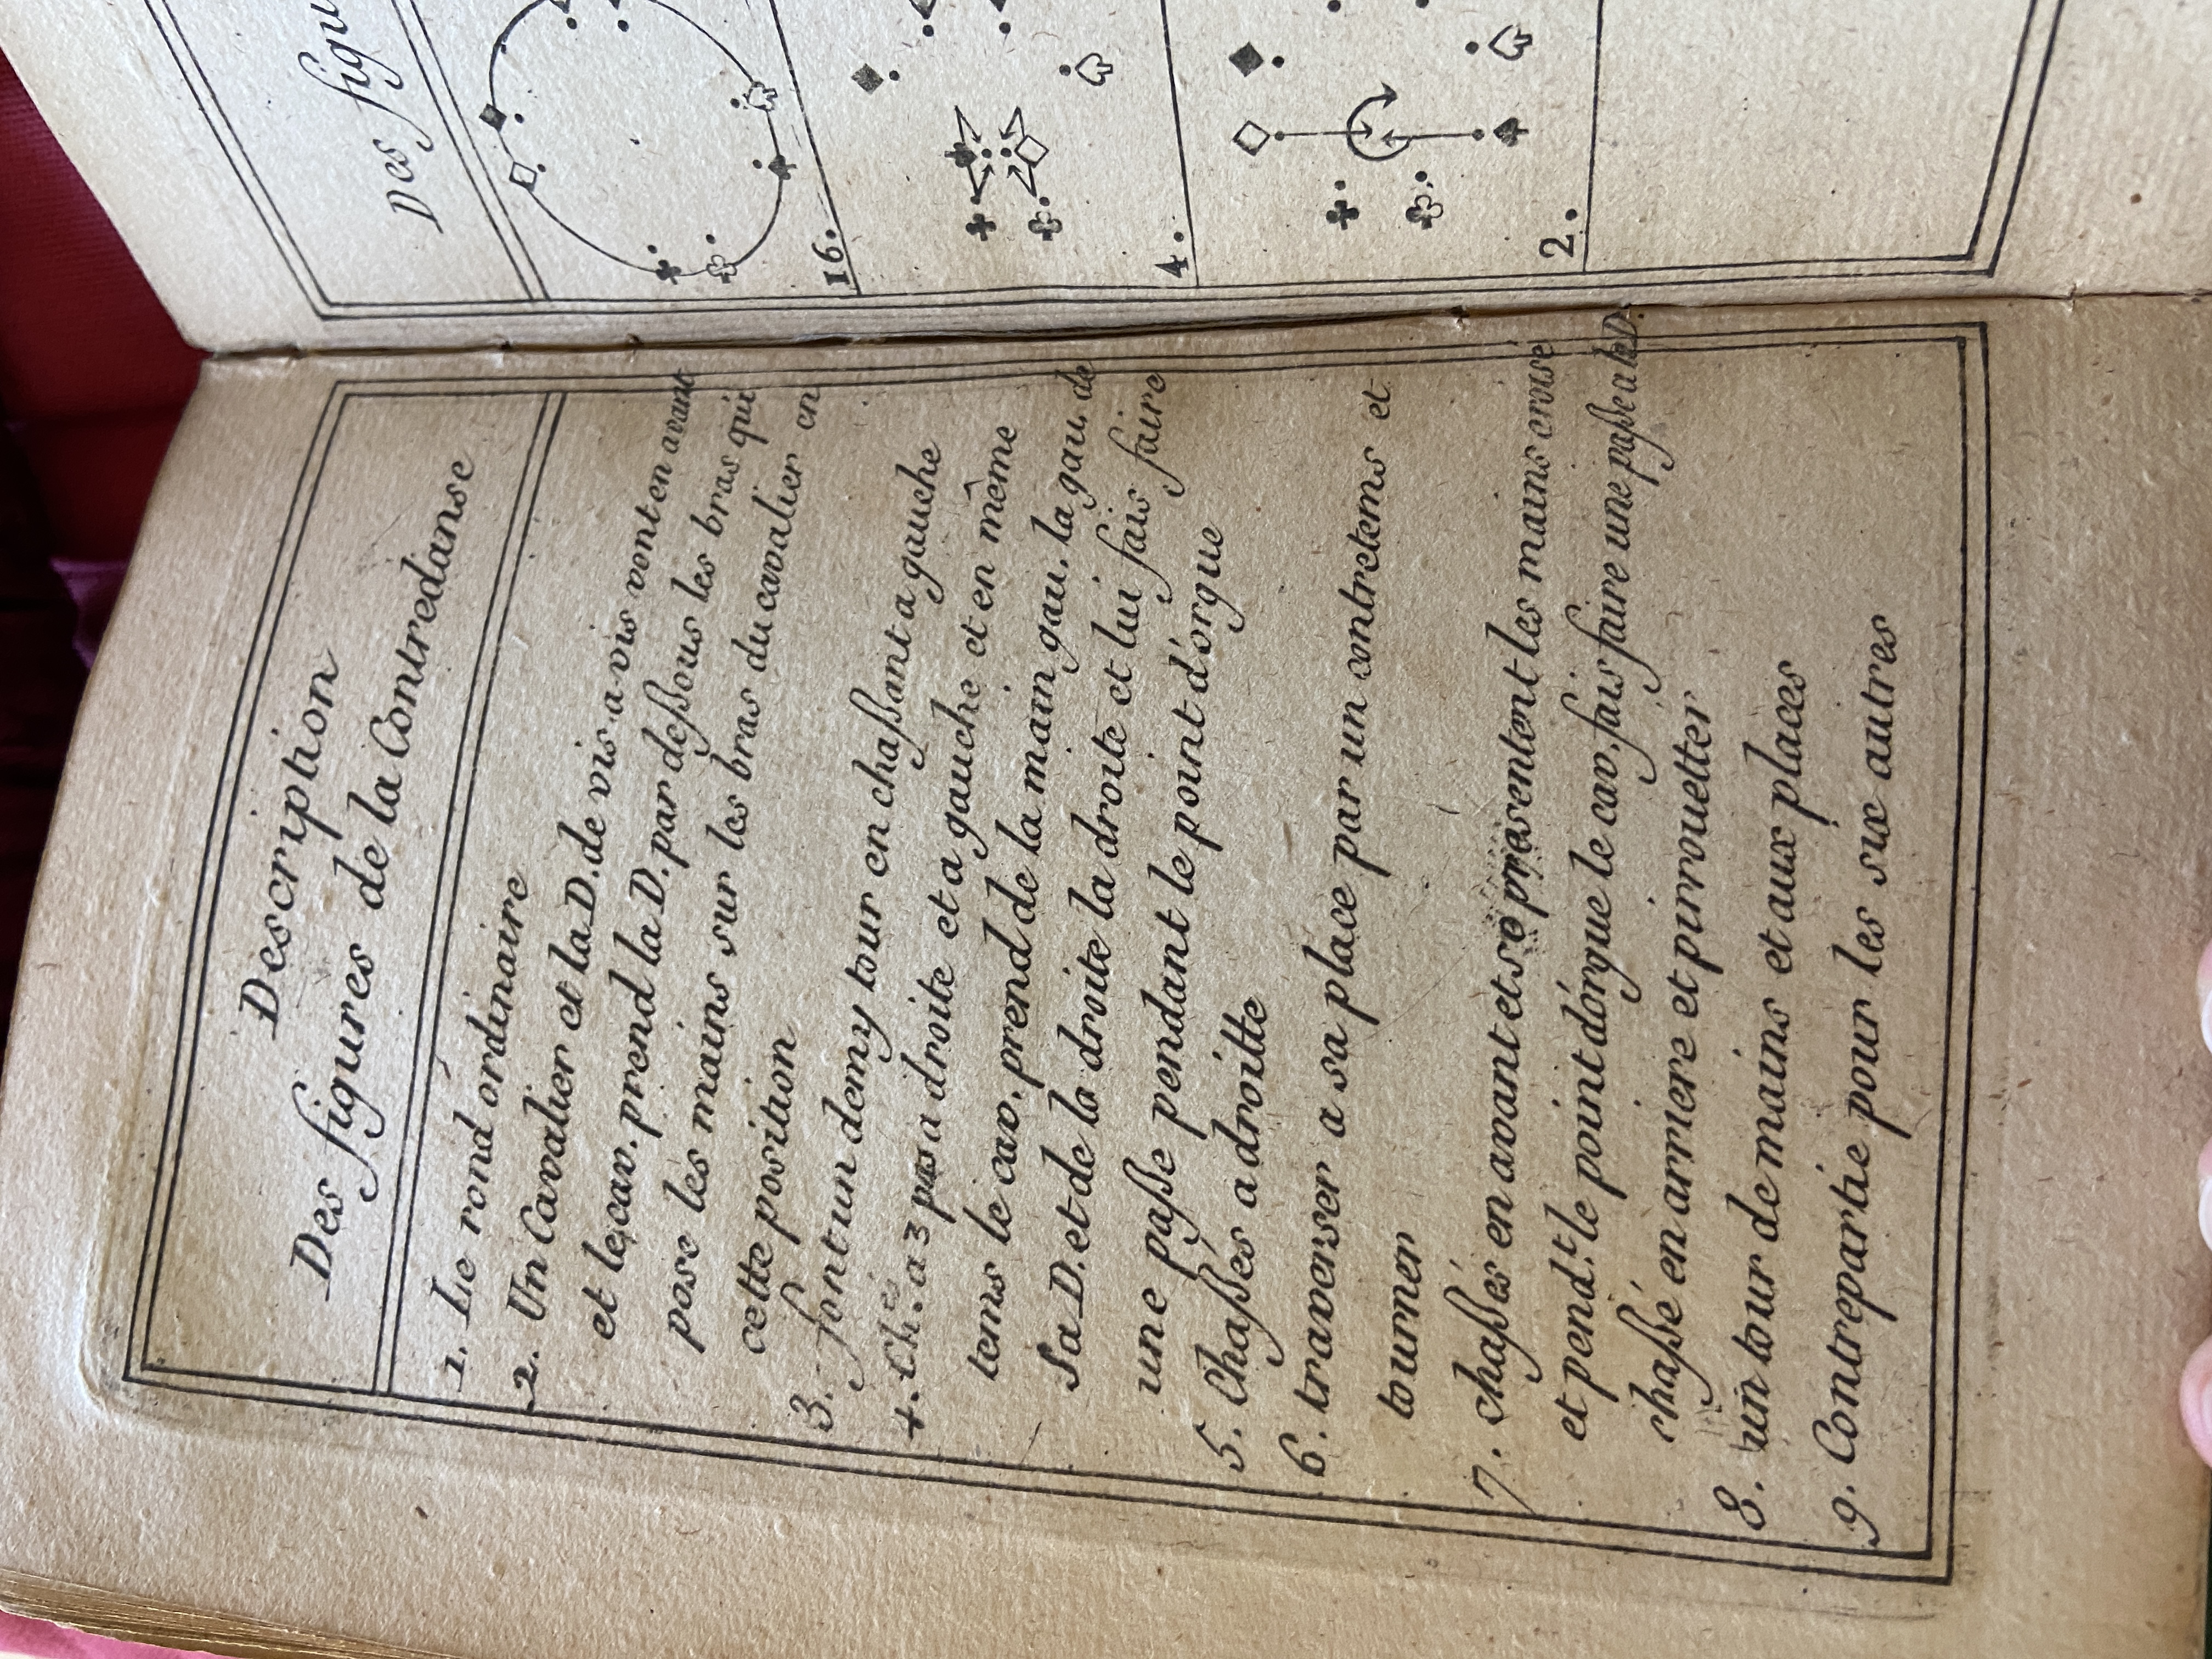 Description
Des figures de la Contredanse
1. Le rond ordinaire
2. Un Cavalier et la D. de vis-a-vis vont en avant
et le cav. prend la D. par deſsous les bras qui
pose les mains sur les bras du cavalier en
cette position
3. font un demy tour en chaſsant a gauche
4. Ch.é a 3 pas a droite et a gauche et en même
tems le cav. prend de la main gau. la gau. de
Sa D. et de la droite la droite et lui fais faire
une paſse pendant le point d'orgue
5. Chaſsés a droitte
6. traverser a sa place par un contretems et
tourner
7. chaſsés en avant et se présentent les mains croisé
et pend.t le point d'orgue le cav. fais faire une paſse a la D.
chaſsé en arriere et pirouetter
8. un tour de mains et aux places
9. Contrepartie pour les six autres
Des figu
16.
4.
2.